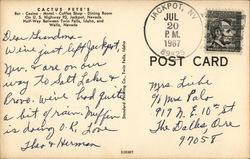 CACTUS PETE'S
Bar - Casino - Motel - Coffee Shop - Dining Room
On U. S. Highway 93, Jackpot, Nevada
Half-Way Between Twin Falls, Idaho, and
Wells, Nevada
Dear Grandma -
We've just left Jackpot,
Nev. & are on our
way to Salt Lake &
Provo. We've had quite
a bit of rain. Muffin
is doing O.K. Love
Theo & Herman
JACKPOT, NV
JUL
20
P M
1967
89825
POST CARD
Mrs.
% Mrs Polo
917 N. E 10th St
The Dalles, Ore
97058